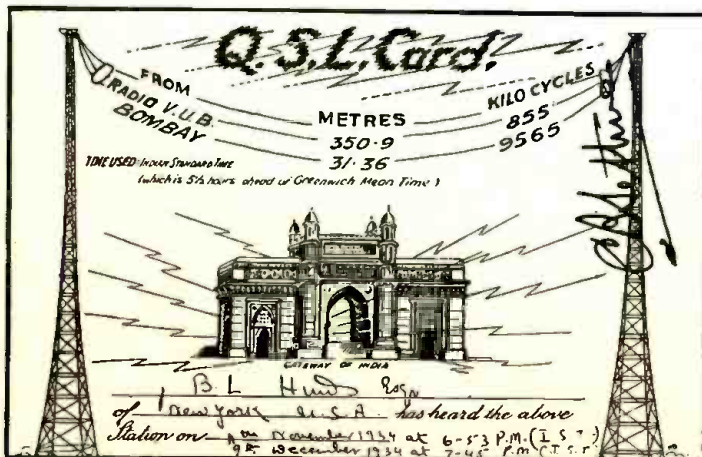 Q.S.L. Card.
FROM
RADIO V.U.B.
BOMBAY
METRES
350·9
31·36
KILO CYCLES
855
9565
TIME USED: INDIAN STANDARD TIME
(which is 5½ hours ahead of Greenwich Mean Time)
GATEWAY OF INDIA
B. L. Esqr
of New York U.S.A. has heard the above
Station on November 1934 at 6-53 P.M. (I.S.T.)
9th December 1934 at 7-45 P.M. (I.S.T.)